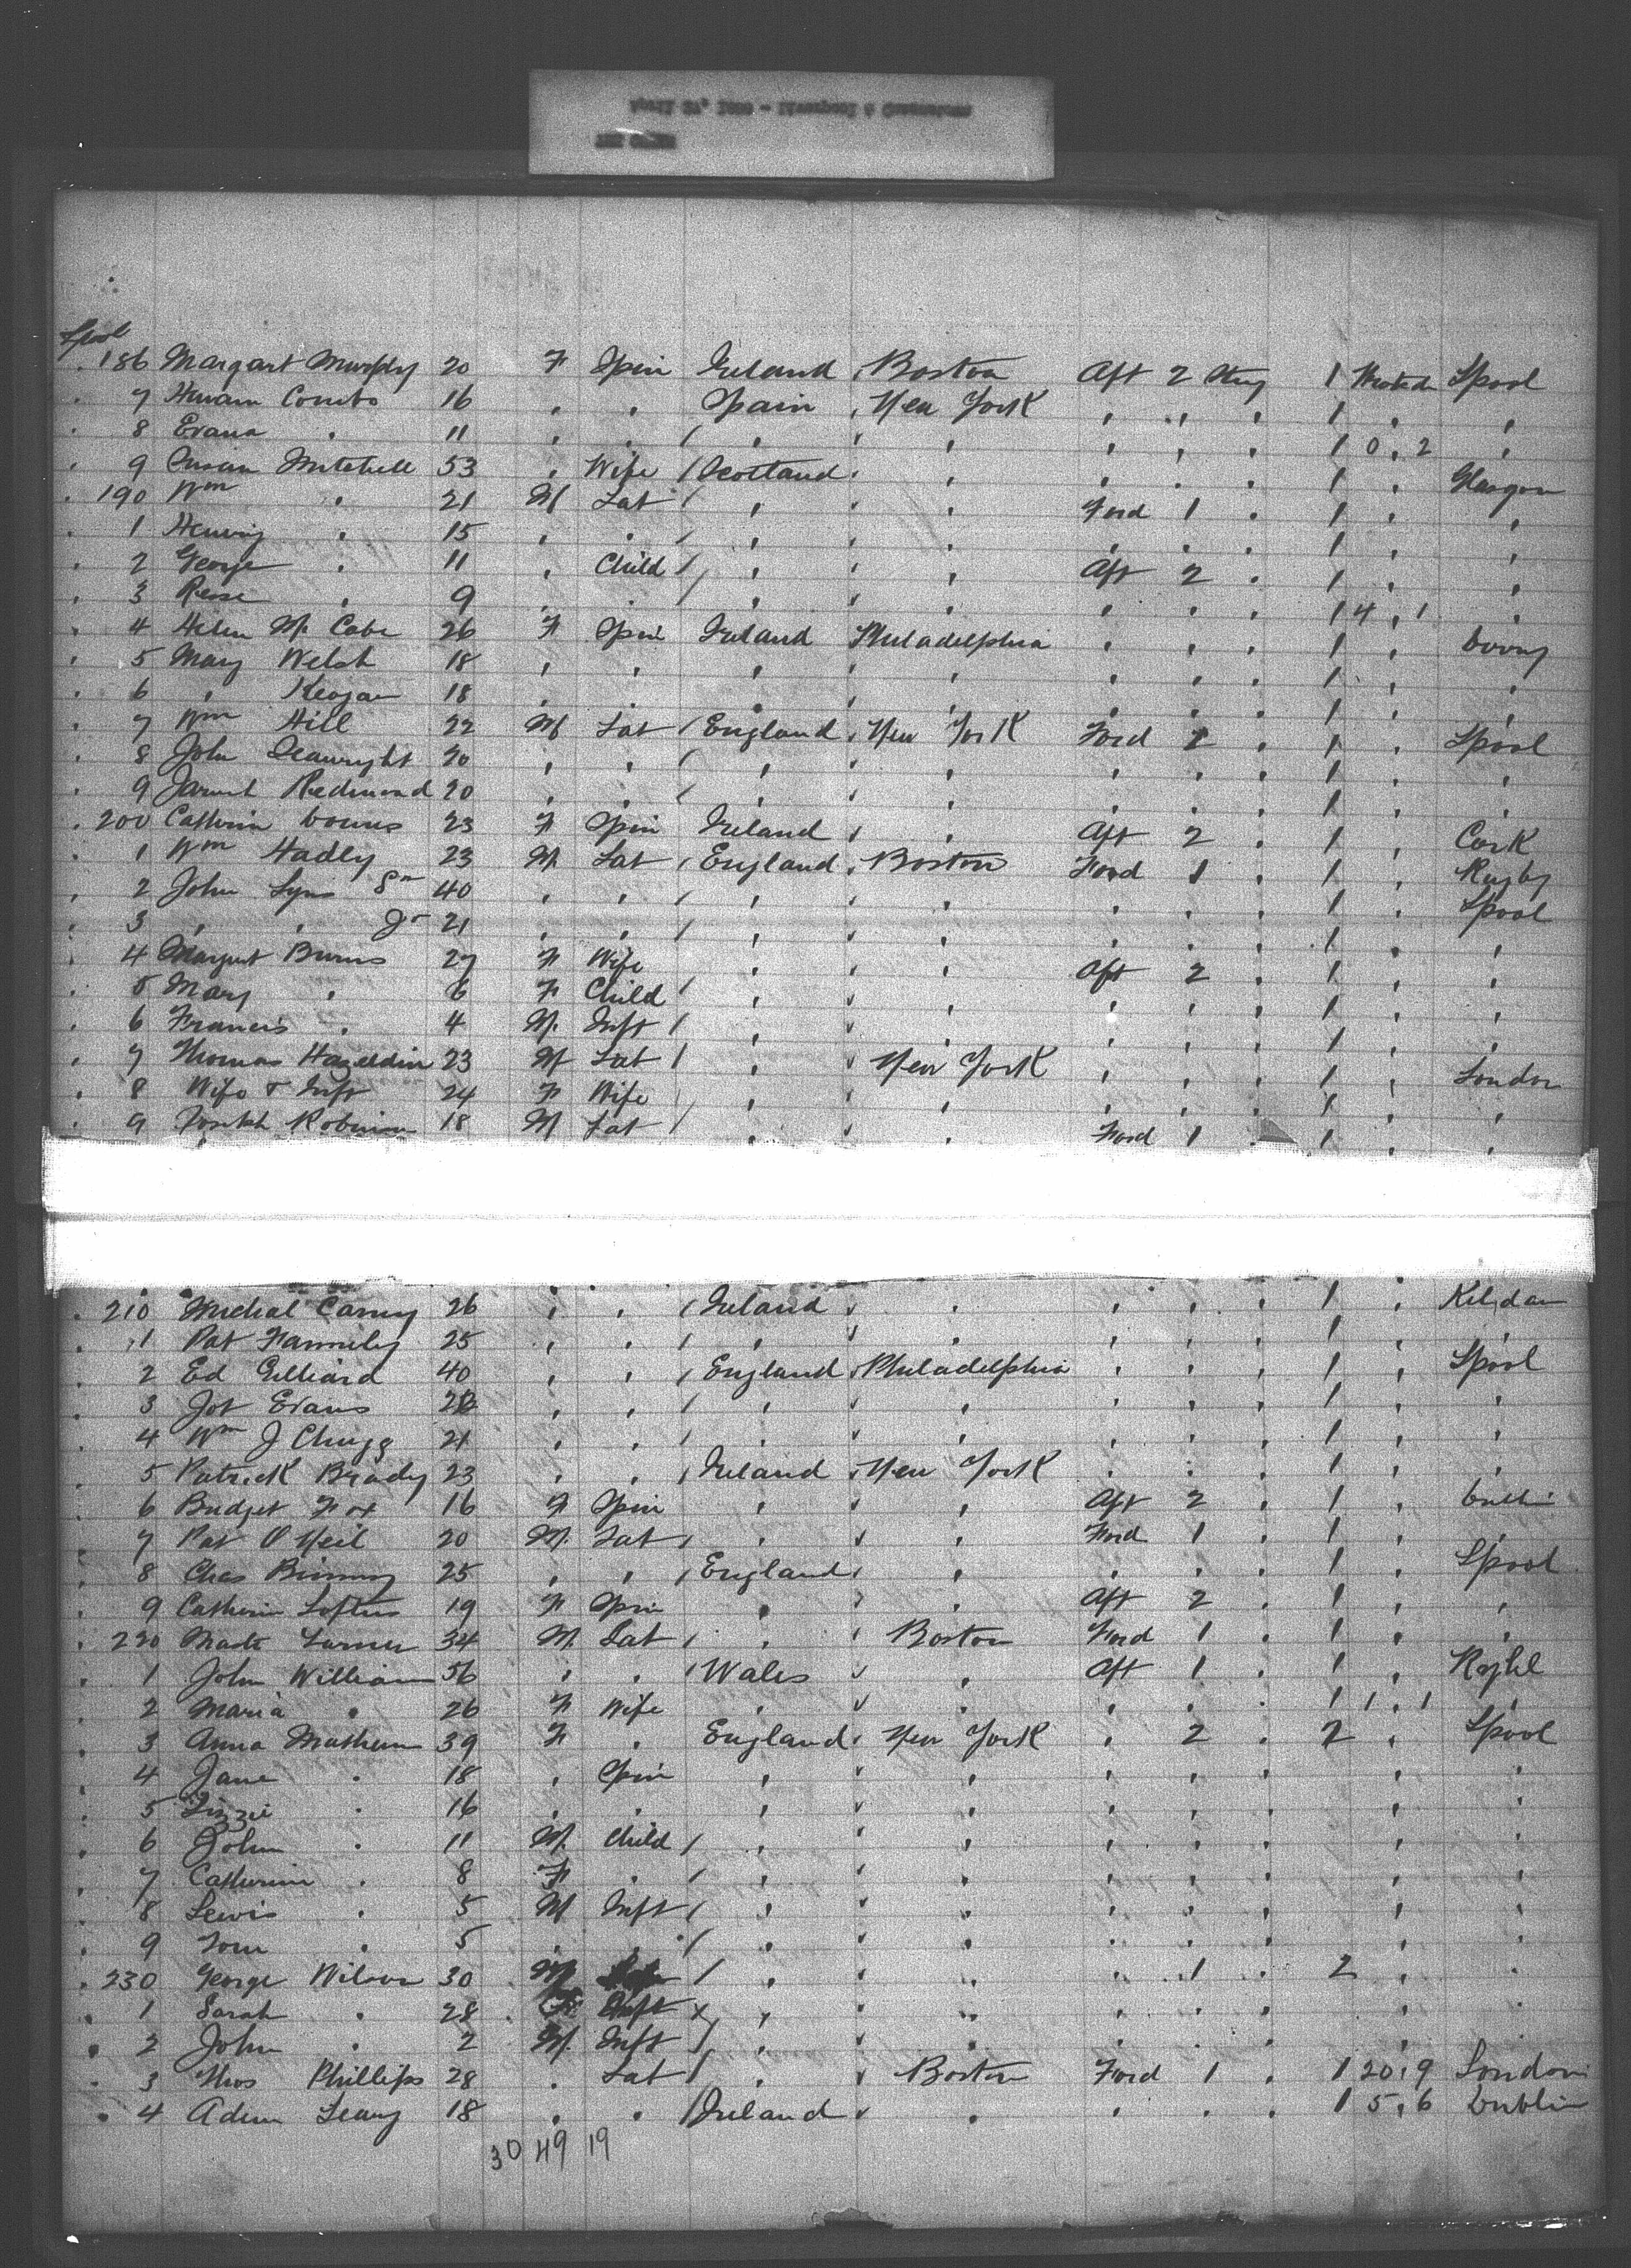 Lpool
186 Margart Murphy 20 F Spin Ireland Boston Aft 2 Stug 1 Lpool
7 Combs 16 , , Spain , New York , , , 1 , ,
8 Evana , 11 , , / , , , , , , 1 0 , 2 ,
9 Susan Mitchell 53 , Wife / Scotland , , , , , 1 , Glasgow
190 Wm , 21 M Lab / , , , Ford 1 , 1 , ,
1 Henry , 15 , , / , , , , , , 1 , ,
2 George , 11 , Child / , , , Aft 2 , 1 , ,
3 , 9 , , / , , , , , , 1 4 , 1 ,
4 Helen Mc Cabe 26 F Spin Ireland Philadelphia , , , 1 ,
5 Mary Welsh 18 , , , , , , , 1 , ,
6 , Keogan 18 , , , , , , , 1 , ,
7 Wm Hill 22 M Lab / England , New York Ford 2 , 1 , Lpool
8 John Seawright 20 , , / , , , , , , 1 , ,
9 Redmond 20 , , / , , , , , , 1 , ,
200 Catherin Downs 23 F Spin Ireland , , Aft 2 , 1 , Cork
1 Wm Hadly 23 M Lab / England , Boston Ford 1 , 1 , Rugby
2 John Lyns Sr 40 , , / , , , , , , 1 , Lpool
3 , , Jr 21 , , / , , , , , , 1 , ,
4 Margret Burns 27 F Wife , , , Aft 2 , 1 , ,
5 Mary , 6 F Child / , , , , , , 1 , ,
6 Francis , 4 M. Inft / , , , , , , 1 , ,
7 Thomas Hazeldin 23 M Lab / , , New York , , , 1 , London
8 Wife & Inft 24 F Wife , , , , , , 1 , ,
9 Joseph Robinson 18 M Lab / , , , Ford 1 , 1 , ,
210 Micheal Carney 26 , , / Ireland , , , , , 1 , Kildare
11 Pat 25 , , / , , , , , , 1 , ,
2 Ed Gilliard 40 , , / England Philadelphia , , , 1 , Lpool
3 Jos Evans 28 , , / , , , , , , 1 , ,
4 Wm J Chugg 21 , , / , , , , , , 1 , ,
5 Patrick Brady 23 , , / Ireland , New York , , , 1 , ,
6 Bridget Fox 16 F Spin , , Aft 2 , 1 , Dublin
7 Pat O Neil 20 M. Lab / , , , Ford 1 , 1 , ,
8 Chas 25 , , / England , , , , , 1 , Lpool
9 Catherin Loftus 19 F Spin , , , Aft 2 , 1 , ,
220 Turner 34 M. Lab / , , Boston Ford 1 , 1 , ,
1 John William 56 , , / Wales , , Aft 1 , 1 ,
2 Maria , 26 F Wife , , , , , , 1 1 , 1 ,
3 Anna 39 F , England , New York , 2 , 2 , Lpool
4 Jane , 18 , Spin , , , , , , , ,
5 Lizzie , 16 , , , , , , , , , ,
6 John , 11 M. Child / , , , , , , , ,
7 Catherin , 8 F , / , , , , , , , ,
8 Lewis , 5 M Inft / , , , , , , , ,
9 Tom , 5 , , / , , , , , , , ,
230 George Wilson 30 M / , , , , 1 , 2 , ,
1 Sarah , 28 , , , , , , , , ,
2 John , 2 M. Inft / , , , , , , , ,
3 Thos Phillips 28 , Lab / , , Boston Ford 1 , 1 20 , 9 London
4 Leary 18 , , / Ireland , , , , , 1 5 , 6 Dublin
30 49 19